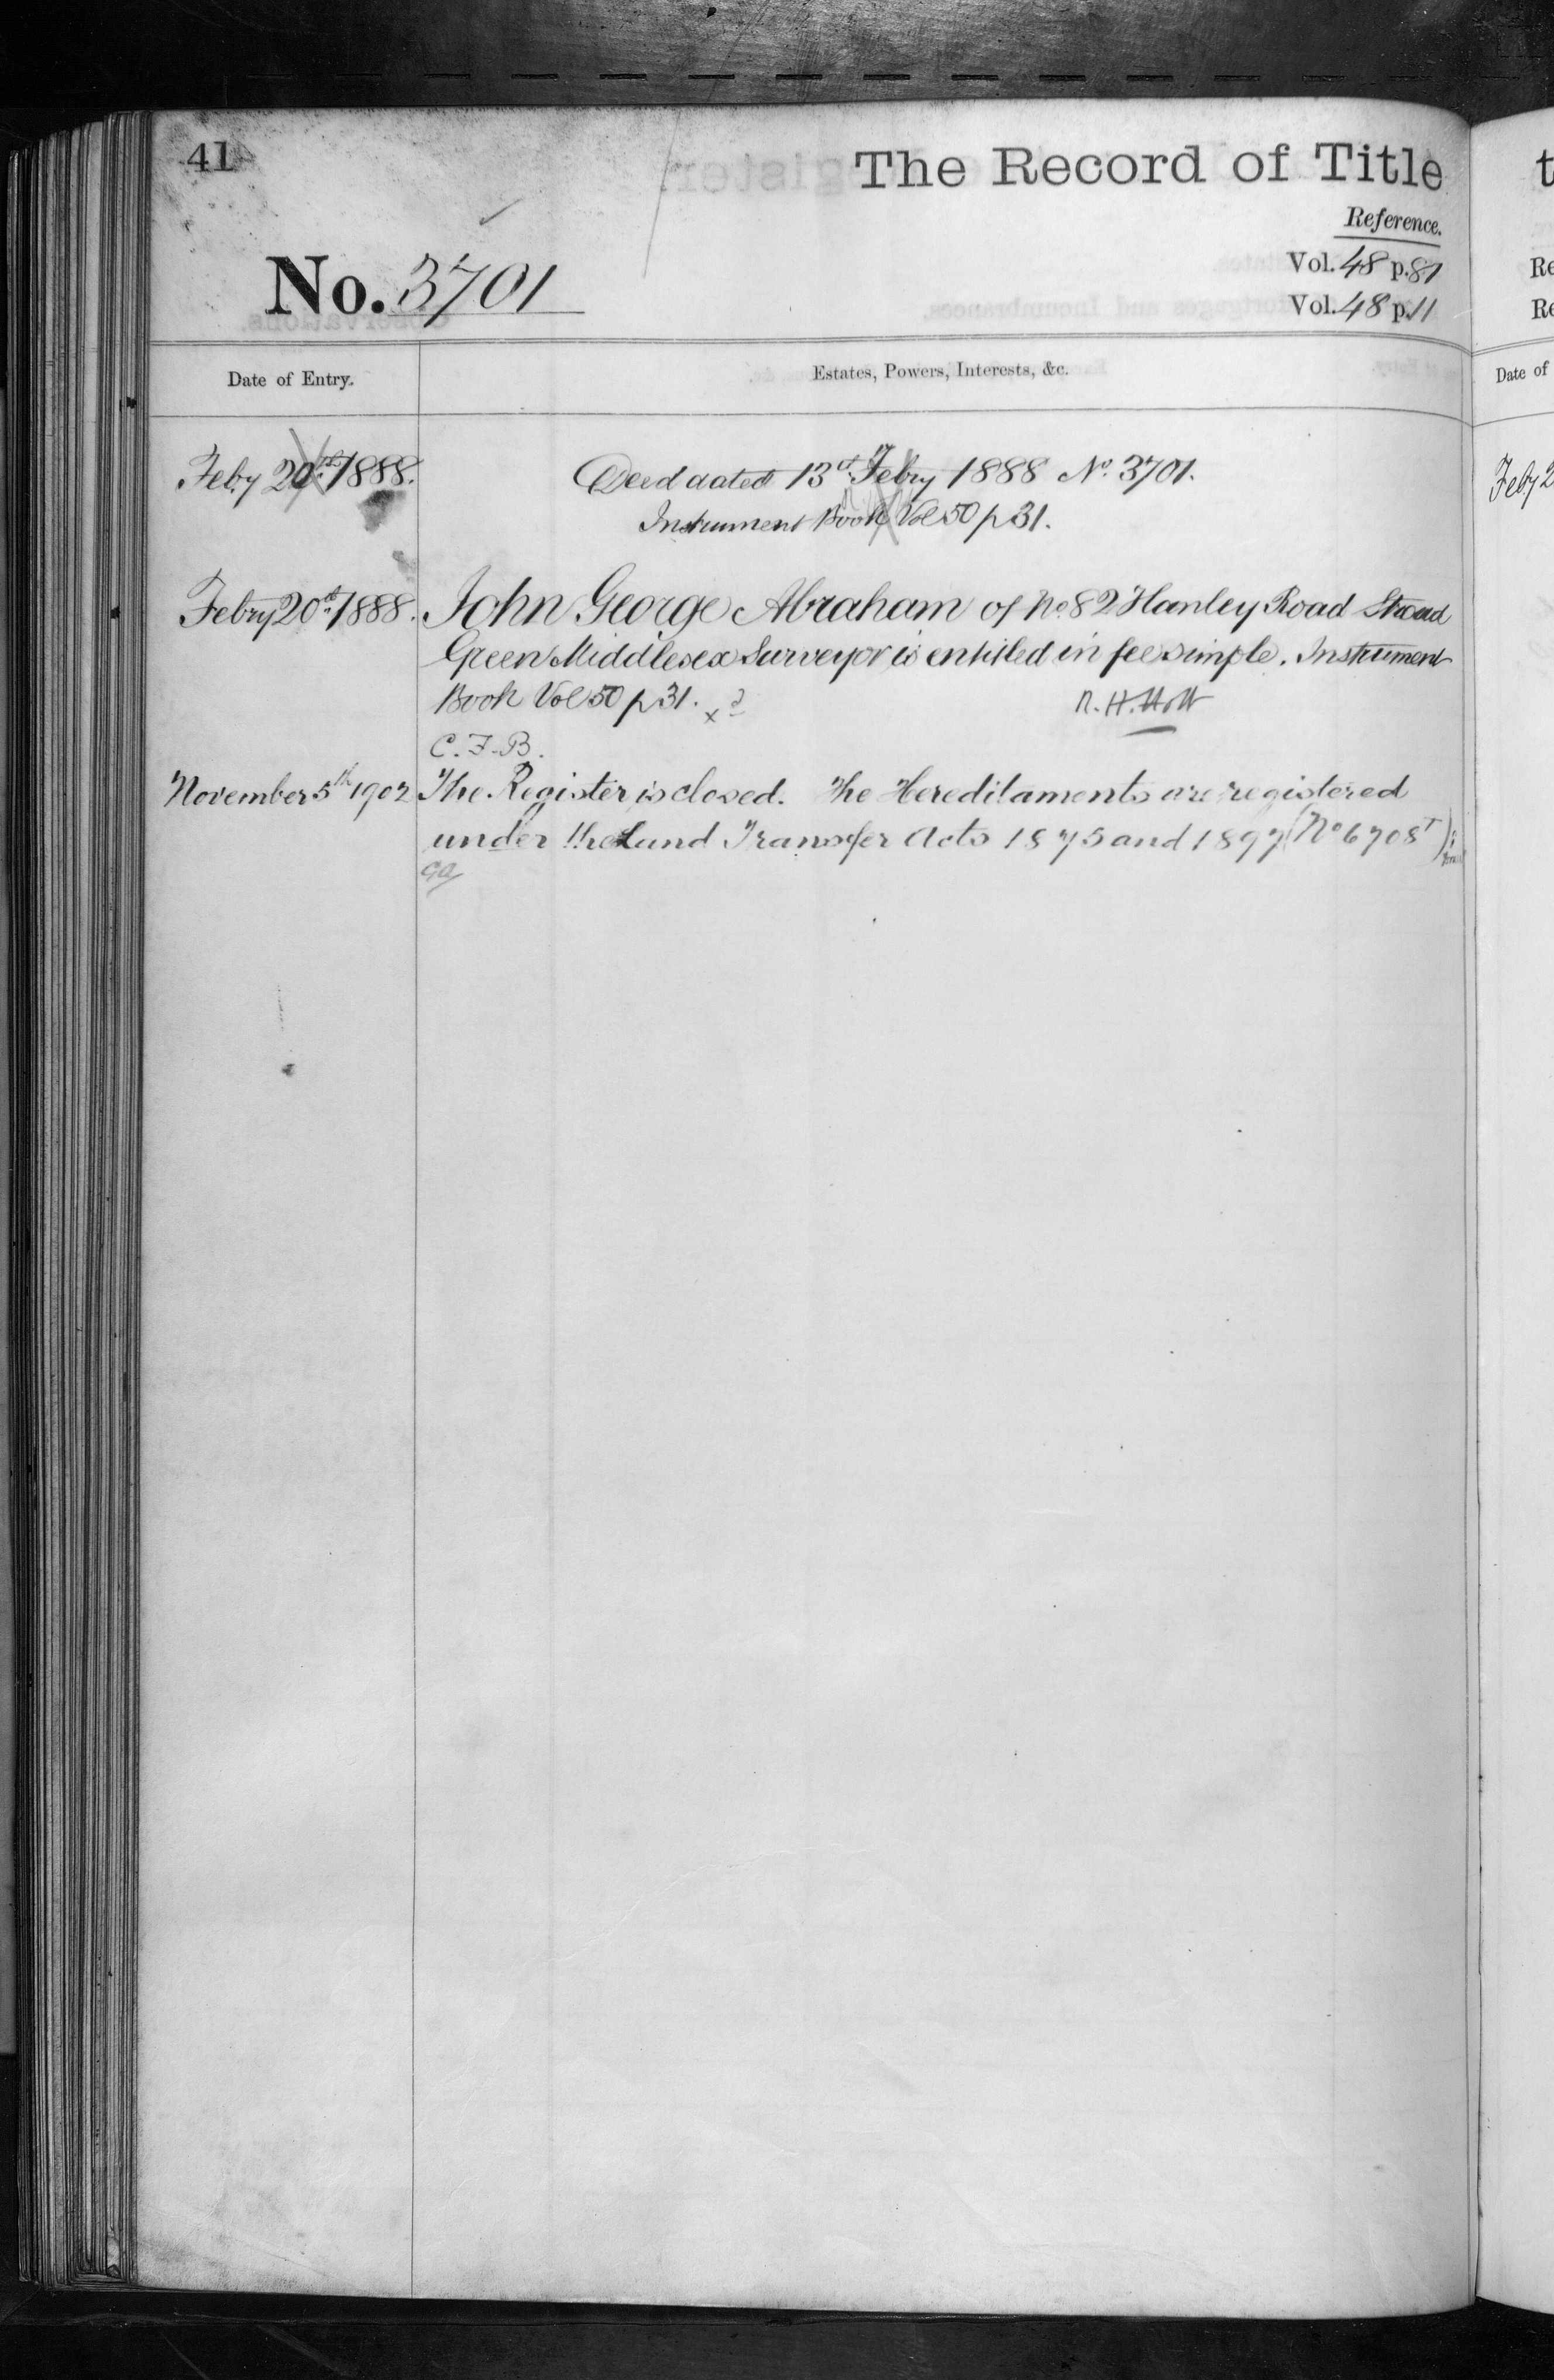 41
The Record of Title
Reference.
Vol. 48 p. 81
No. 3701
Vol. 48 p. 11
Date of Entry.
Estates, Powers, Interests, &c.
Feby 20th 1888.
Deed dated 13th Febry 1888 No. 3701.
Instrument Book Vol 50 p 31.
Febry 20th 1888. John George Abraham of No. 82 Hanley Road Stroud
Green Middlesex Surveyor is entitled in fee simple. Instrument
Book Vol 50 p 31.
R. H. Holt
C. F. B.
November 5th 1902 The Register is closed. The Hereditaments are registered
under the Land Transfer Acts 1875 and 1897 (No 6708
t
Re
Re
Date of
Feby 2